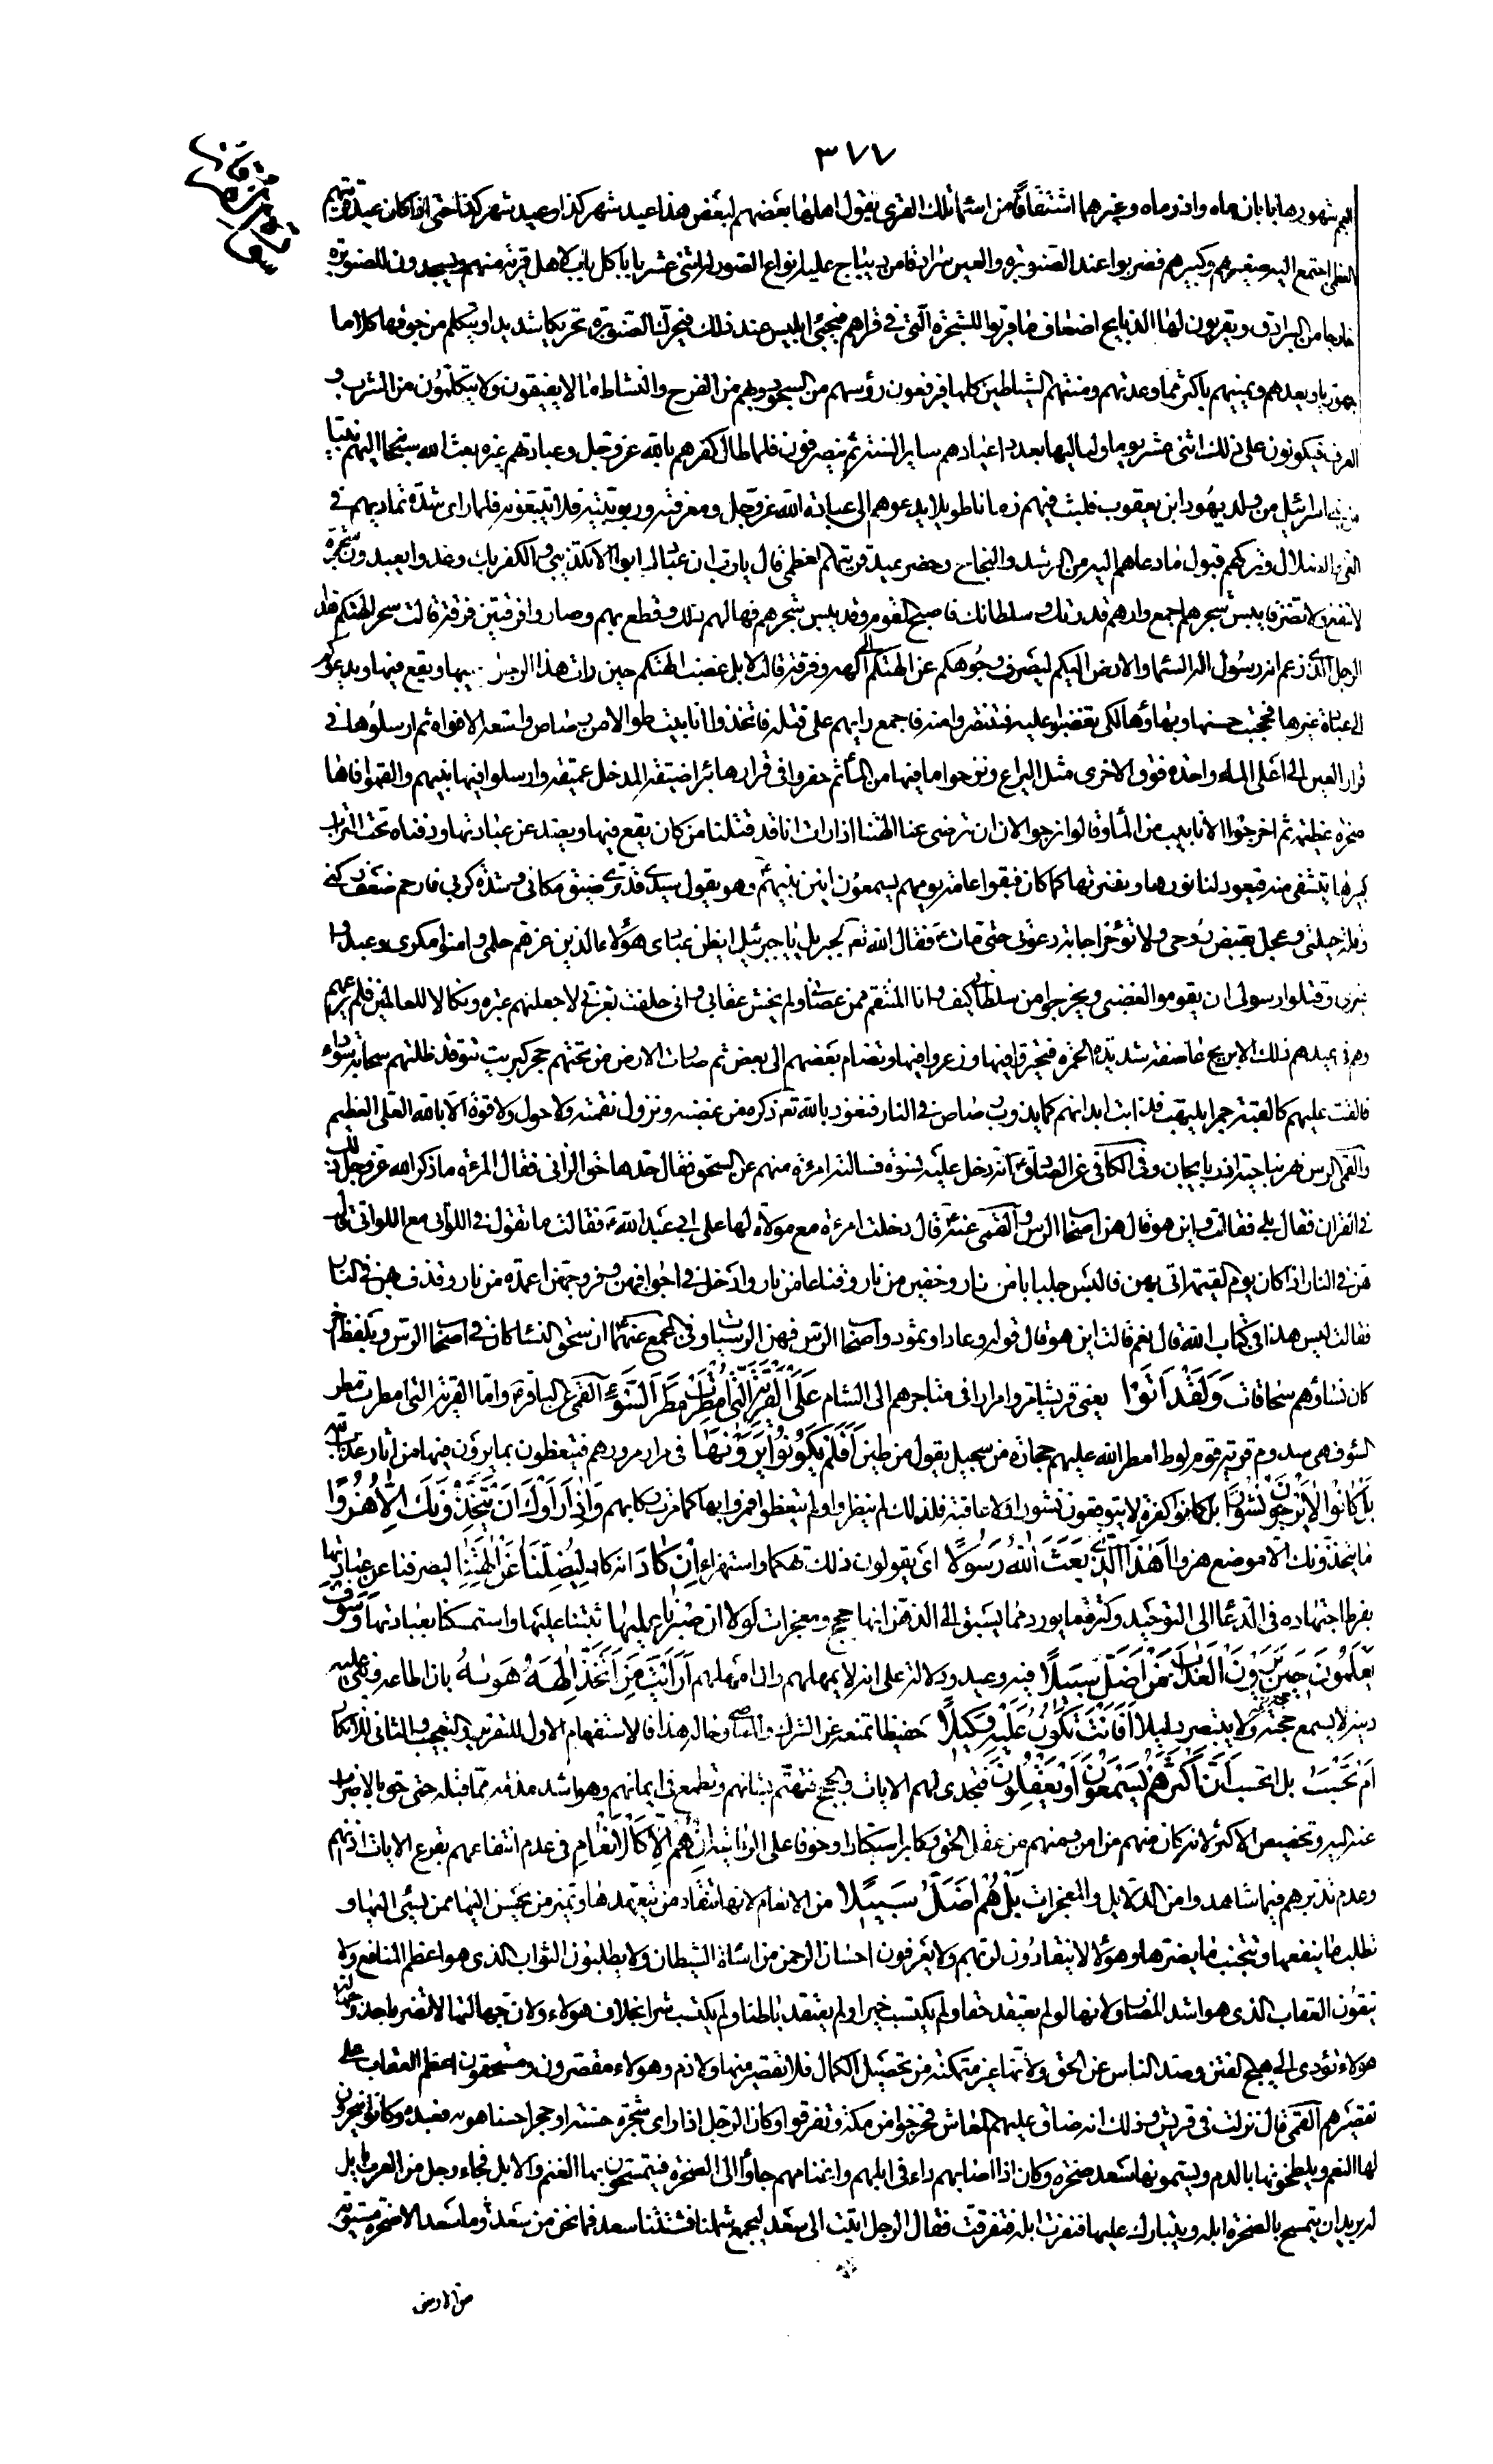 ٣٧٧
العجم شهورها بابان ماه واذر ماه وغيرهما اشتقاقا من اسماء تلك القرى يقول اهلها بعضهم لبعض هذا عيد شهر كذا وعيد شهر كذا حتى اذا كان عيد قريتهم
العظمى اجتمع اليه صغيرهم وكبيرهم فضربوا عند الصنوبرة والعين سرادقا من ديباج عليه انواع الصور له اثنى عشر بابا كل باب لاهل قرية منهم ويسجدون للصنوبرة
خارجا من السرادق ويقربون لها الذبايح اضعاف ما قربوا للشجرة التي في قراهم فيجيئ ابليس عند ذلك فيحرك الصنوبرة تحريكا شديدا ويتكلم من جوفها كلاما
جهوريا ويعدهم ويمنيهم باكثر مما وعدتهم ومنتهم الشياطين كلها فيرفعون رؤسهم من السجود وبهم من الفرح والنشاط ما لا يفيقون ولا يتكلمون من الشرب و
العزف فيكونون على ذلك اثنى عشر يوما ولياليها بعدد اعيادهم ساير السنة ثم ينصرفون فلما طال كفرهم بالله عز وجل وعبادتهم غيره بعث الله سبحانه اليهم نبيا
من بني اسرائيل من ولد يهود ابن يعقوب فلبث فيهم زمانا طويلا يدعوهم الى عبادة الله عز وجل ومعرفته وربوبيته فلا يتبعونه فلما راى شدة تماديهم في
الغي والضلال وتركهم قبول ما دعاهم اليه من الرشد والنجاح وحضر عيد قريتهم العظمى قال يا رب ان عبادك ابوا الا تكذيبي والكفر بك وغدوا يعبدون شجرة
لا تنفع ولا تضر فايبس شجرهم اجمع وارهم قدرتك وسلطانك فاصبح القوم وقد يبس شجرهم فهالهم ذلك وقطع بهم وصاروا فرقتين فرقة قالت سحر الهتكم هذا
الرجل الذي زعم انه رسول اله السماء والارض اليكم ليصرف وجوهكم عن الهتكم الى الهه وفرقة قالت لا بل غضبت الهتكم حين رات هذا الرجل يعيبها ويقع فيها ويدعوكم
الى عبادة غيرها فحجبت حسنها وبهاؤها لكي تغضبوا عليه فتنتصروا منه فاجمع رايهم على قتله فاتخذوا انابيب طوالا من رصاص واسعة الافواه ثم ارسلوها في
قرار العين الى اعلى الماء واحدة فوق الاخرى مثل البرابخ ونزحوا ما فيها من الماء ثم حفروا في قرارها بئرا ضيقة المدخل عميقة وارسلوا فيها نبيهم والقموا فاها
صخرة عظيمة ثم اخرجوا الانابيب من الماء وقالوا نرجو الان ان ترضى عنا الهتنا اذا رات انا قد قتلنا من كان يقع فيها ويصد عن عبادتها ودفناه تحت التراب
كبيرها يتشفى منه فيعود لنا نورها ونضرتها كما كان فبقوا عامة يومهم يسمعون انين نبيهم وهو يقول سيدي قد ترى ضيق مكاني وشدة كربي فارحم ضعف ركني
وقلة حيلتي وعجل بقبض روحي ولا تؤخر اجابة دعوتي حتى مات فقال الله تع لجبرئيل يا جبرئيل ايظن عبادي هؤلاء الذين غرهم حلمي وامنوا مكري وعبدوا
غيري وقتلوا رسولي ان يقوموا لغضبي ويخرجوا من سلطاني كيف وانا المنتقم ممن عصاني ولم يخش عقابي واني حلفت بعزتي لاجعلنهم عبرة ونكالا للعالمين فلم يرعهم
وهم في عيدهم ذلك الا بريح عاصفة شديدة الحمرة فتحيروا فيها وذعروا فيها وتضام بعضهم الى بعض ثم صارت الارض من تحتهم حجر كبريت تتوقد وظلتهم سحابة سوداء
فالقت عليهم كالقبة جمرا يلهب فذابت ابدانهم كما يذوب الرصاص في النار فنعوذ بالله تع ذكره من غضبه ونزول نقمته ولا حول ولا قوة الا بالله العلي العظيم
والقمي الرس نهر بناحية اذربايجان وفي الكافي عن الصادق انه دخل عليه نسوة فسالته امرءة منهم عن السحق فقال حدها حد الزاني فقال المرءة ما ذكر الله عز وجل ذلك
في القران فقال بلى فقالت واين هو قال هن اصحاب الرس والقمي عنه قال دخلت امرءة مع مولاة لها على ابي عبد الله فقالت ما تقول في اللواتي مع اللواتي قال
هن في النار اذا كان يوم القيمة اتي بهن فالبسن جلبابا من نار وخفين من نار وقناعا من نار وادخل في اجوافهن وفروجهن اعمدة من نار وقذف بهن في النار
فقالت ليس هذا في كتاب الله قال نعم قالت اين هو قال قوله وعادا وثمود واصحاب الرس فهن الرسيات وفي المجمع عنهما ان سحق النساء كان في اصحاب الرس وبلفظ اخر
كان نساؤهم سحاقات وَلَقَدْ اَتَوْا يعني قريشا مروا مرارا في متاجرهم الى الشام عَلَى الْقَرْيَةِ الَّتِي اُمْطِرَتْ مَطَرَ السَّوْءِ القمي عن الباقر واما القرية التي امطرت مطر
السوء فهي سدوم قرية قوم لوط امطر الله عليهم حجارة من سجيل يقول من طين اَفَلَمْ يَكُونُوا يَرَوْنَهَا في مرار مرورهم فيتعظون بما يرون فيها من اثار عذاب الله
بَلْ كَانُوا لَا يَرْجُونَ نُشُورًا بل كانوا كفرة لا يتوقعون نشورا ولا عاقبة فلذلك لم ينظروا ولم يتعظوا فمروا بها كما مرت ركابهم وَاِذَا رَاَوْكَ اِنْ يَتَّخِذُونَكَ اِلَّا هُزُوًا
ما يتخذونك الا موضع هزوا اَهٰذَا الَّذِي بَعَثَ اللهُ رَسُولًا اي يقولون ذلك تهكما واستهزاء اِنْ كَادَ انه كاد لَيُضِلُّنَا عَنْ اٰلِهَتِنَا ليصرفنا عن عبادتها
بفرط اجتهاده في الدعاء الى التوحيد وكثرة ما يورد مما يسبق الى الذهن انها حجج ومعجزات لَوْلَا اَنْ صَبَرْنَا عَلَيْهَا ثبتنا عليها واستمسكنا بعبادتها وَسَوْفَ
يَعْلَمُونَ حِينَ يَرَوْنَ الْعَذَابَ مَنْ اَضَلُّ سَبِيلًا فيه وعيد ودلالة على انه لا يهملهم وان امهلهم اَرَاَيْتَ مَنِ اتَّخَذَ اِلٰهَهُ هَوٰيهُ بان اطاعه وبنى عليه
دينه لا يسمع حجة ولا يتبصر دليلا اَفَاَنْتَ تَكُونُ عَلَيْهِ وَكِيلًا حفيظا تمنعه عن الشرك والمعاصي وحاله هذا فالاستفهام الاول للتقرير والتعجيب والثاني للانكار
اَمْ تَحْسَبُ بل اتحسب اَنَّ اَكْثَرَهُمْ يَسْمَعُونَ اَوْ يَعْقِلُونَ فتجدي لهم الايات والحجج فتهتم بشانهم وتطمع في ايمانهم وهو اشد مذمة مما قبله حتى حق بالاضراب
عنه اليه وتخصيص الاكثر لانه كان منهم من امن ومنهم من عقل الحق وكابر استكبارا وخوفا على الرئاسة اِنْ هُمْ اِلَّا كَالْاَنْعَامِ في عدم انتفاعهم بقرع الايات اذانهم
وعدم تدبرهم فيما شاهدوا من الدلايل والمعجزات بَلْ هُمْ اَضَلُّ سَبِيلًا من الانعام لانها تنقاد من يتعهدها وتميز من يحسن اليها ممن يسيئ اليها و
تطلب ما ينفعها وتتجنب ما يضرها وهؤلاء لا ينقادون لربهم ولا يعرفون احسان الرحمن من اساءة الشيطان ولا يطلبون الثواب الذي هو اعظم المنافع ولا
يتقون العقاب الذي هو اشد المضار ولانها لو لم يعتقد حقا ولم يكتسب خيرا ولم يعتقد باطلا ولم يكتسب شرا بخلاف هؤلاء ولان جهالتها لا تضر باحد وجهالة
هؤلاء تؤدي الى هيج الفتن وصد الناس عن الحق ولانها غير متمكنة من تحصيل الكمال فلا تقصير منها ولا ذم وهؤلاء مقصرون ومستحقون اعظم العقاب على
تقصيرهم القمي قال نزلت في قريش وذلك انه ضاق عليهم المعاش فخرجوا من مكة وتفرقوا وكان الرجل اذا راى شجرة حسنة او حجرا حسنا هويه فعبده وكانوا ينحرون
لها النعم ويلطخونها بالدم ويسمونها سعد صخرة وكان اذا اصابهم داء في ابلهم واغنامهم جاؤا الى الصخرة فيتمسحون بها الغنم والابل فجاء رجل من العرب بابل
له يريد ان يتمسح بالصخرة ابله ويتبارك عليها فنفرت ابله فتفرقت فقال الرجل اتيت الى سعد ليجمع شملنا فشتتنا سعد فما نحن من سعد وما سعد الا صخرة مستوية
من الارض